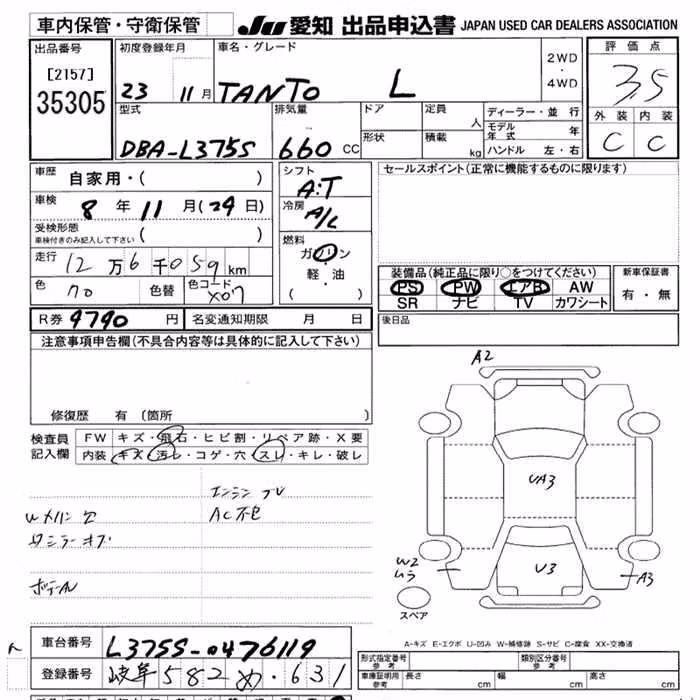 車内保管・守衛保管
JU 愛知 出品申込書 JAPAN USED CAR DEALERS ASSOCIATION
出品番号
[2157]
35305
初度登録年月
23 11月
車名・グレード
TANTO L
2WD
・
4WD
評価点
3.5
外装 内装
C C
型式
DBA-L375S
排気量
660 CC
ドア
形状
定員 人
積載 kg
ディーラー・並行
モデル年式 年
ハンドル 左・右
車歴 自家用・( )
車検 8年11月(29日)
受検形態
車検付きのみ記入して下さい ( )
走行 12万6千059km
色 クロ 色替 色コード X07
シフト
A:T
冷房
A/C
燃料
ガソリン
・
軽・油
( )
セールスポイント(正常に機能するものに限ります)
装備品(純正品に限り○をつけてください)
PS PW エアB AW
SR ナビ TV カワシート
新車保証書
有・無
R券 9790 円 名変通知期限 月 日
後日品
注意事項申告欄(不具合内容等は具体的に記入して下さい)
修復歴 有 〔箇所 〕
検査員記入欄
FW キズ・飛石・ヒビ割・リペア跡・X要
内装 キズ・汚レ・コゲ・穴・スレ・キレ・破レ
エンジン
AC不
ボデーAU
A2
UA3
W2
ムラ
U3
A3
スペア
A-キズ E-エクボ U-凹み W-補修跡 S-サビ C-腐食 XX-交換済
車台番号 L375S-0476119
登録番号 岐阜 582 め・631
形式指定番号
参考
類別区分番号
参考
車庫証明用
参考
長さ cm 幅 cm 高さ cm